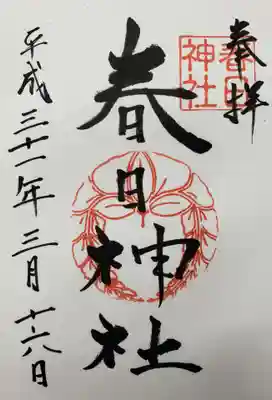 奉拝
春日
神社
春日神社
平成三十一年三月十六日